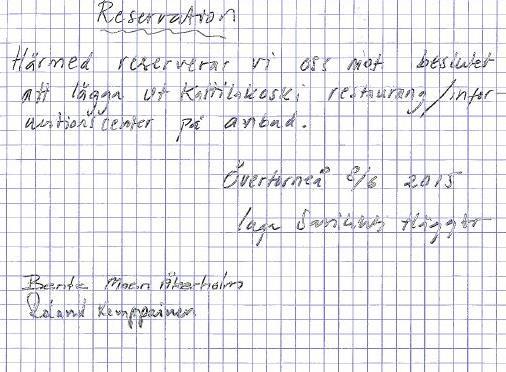 Reservation
Härmed reserverar vi oss mot beslutet
att lägga ut Kattilakoski restaurang/infor-
mationscenter på anbud.
Övertorneå 8/6 2015
Hägger
Bente Moen Åkerholm
Roland Kemppainen